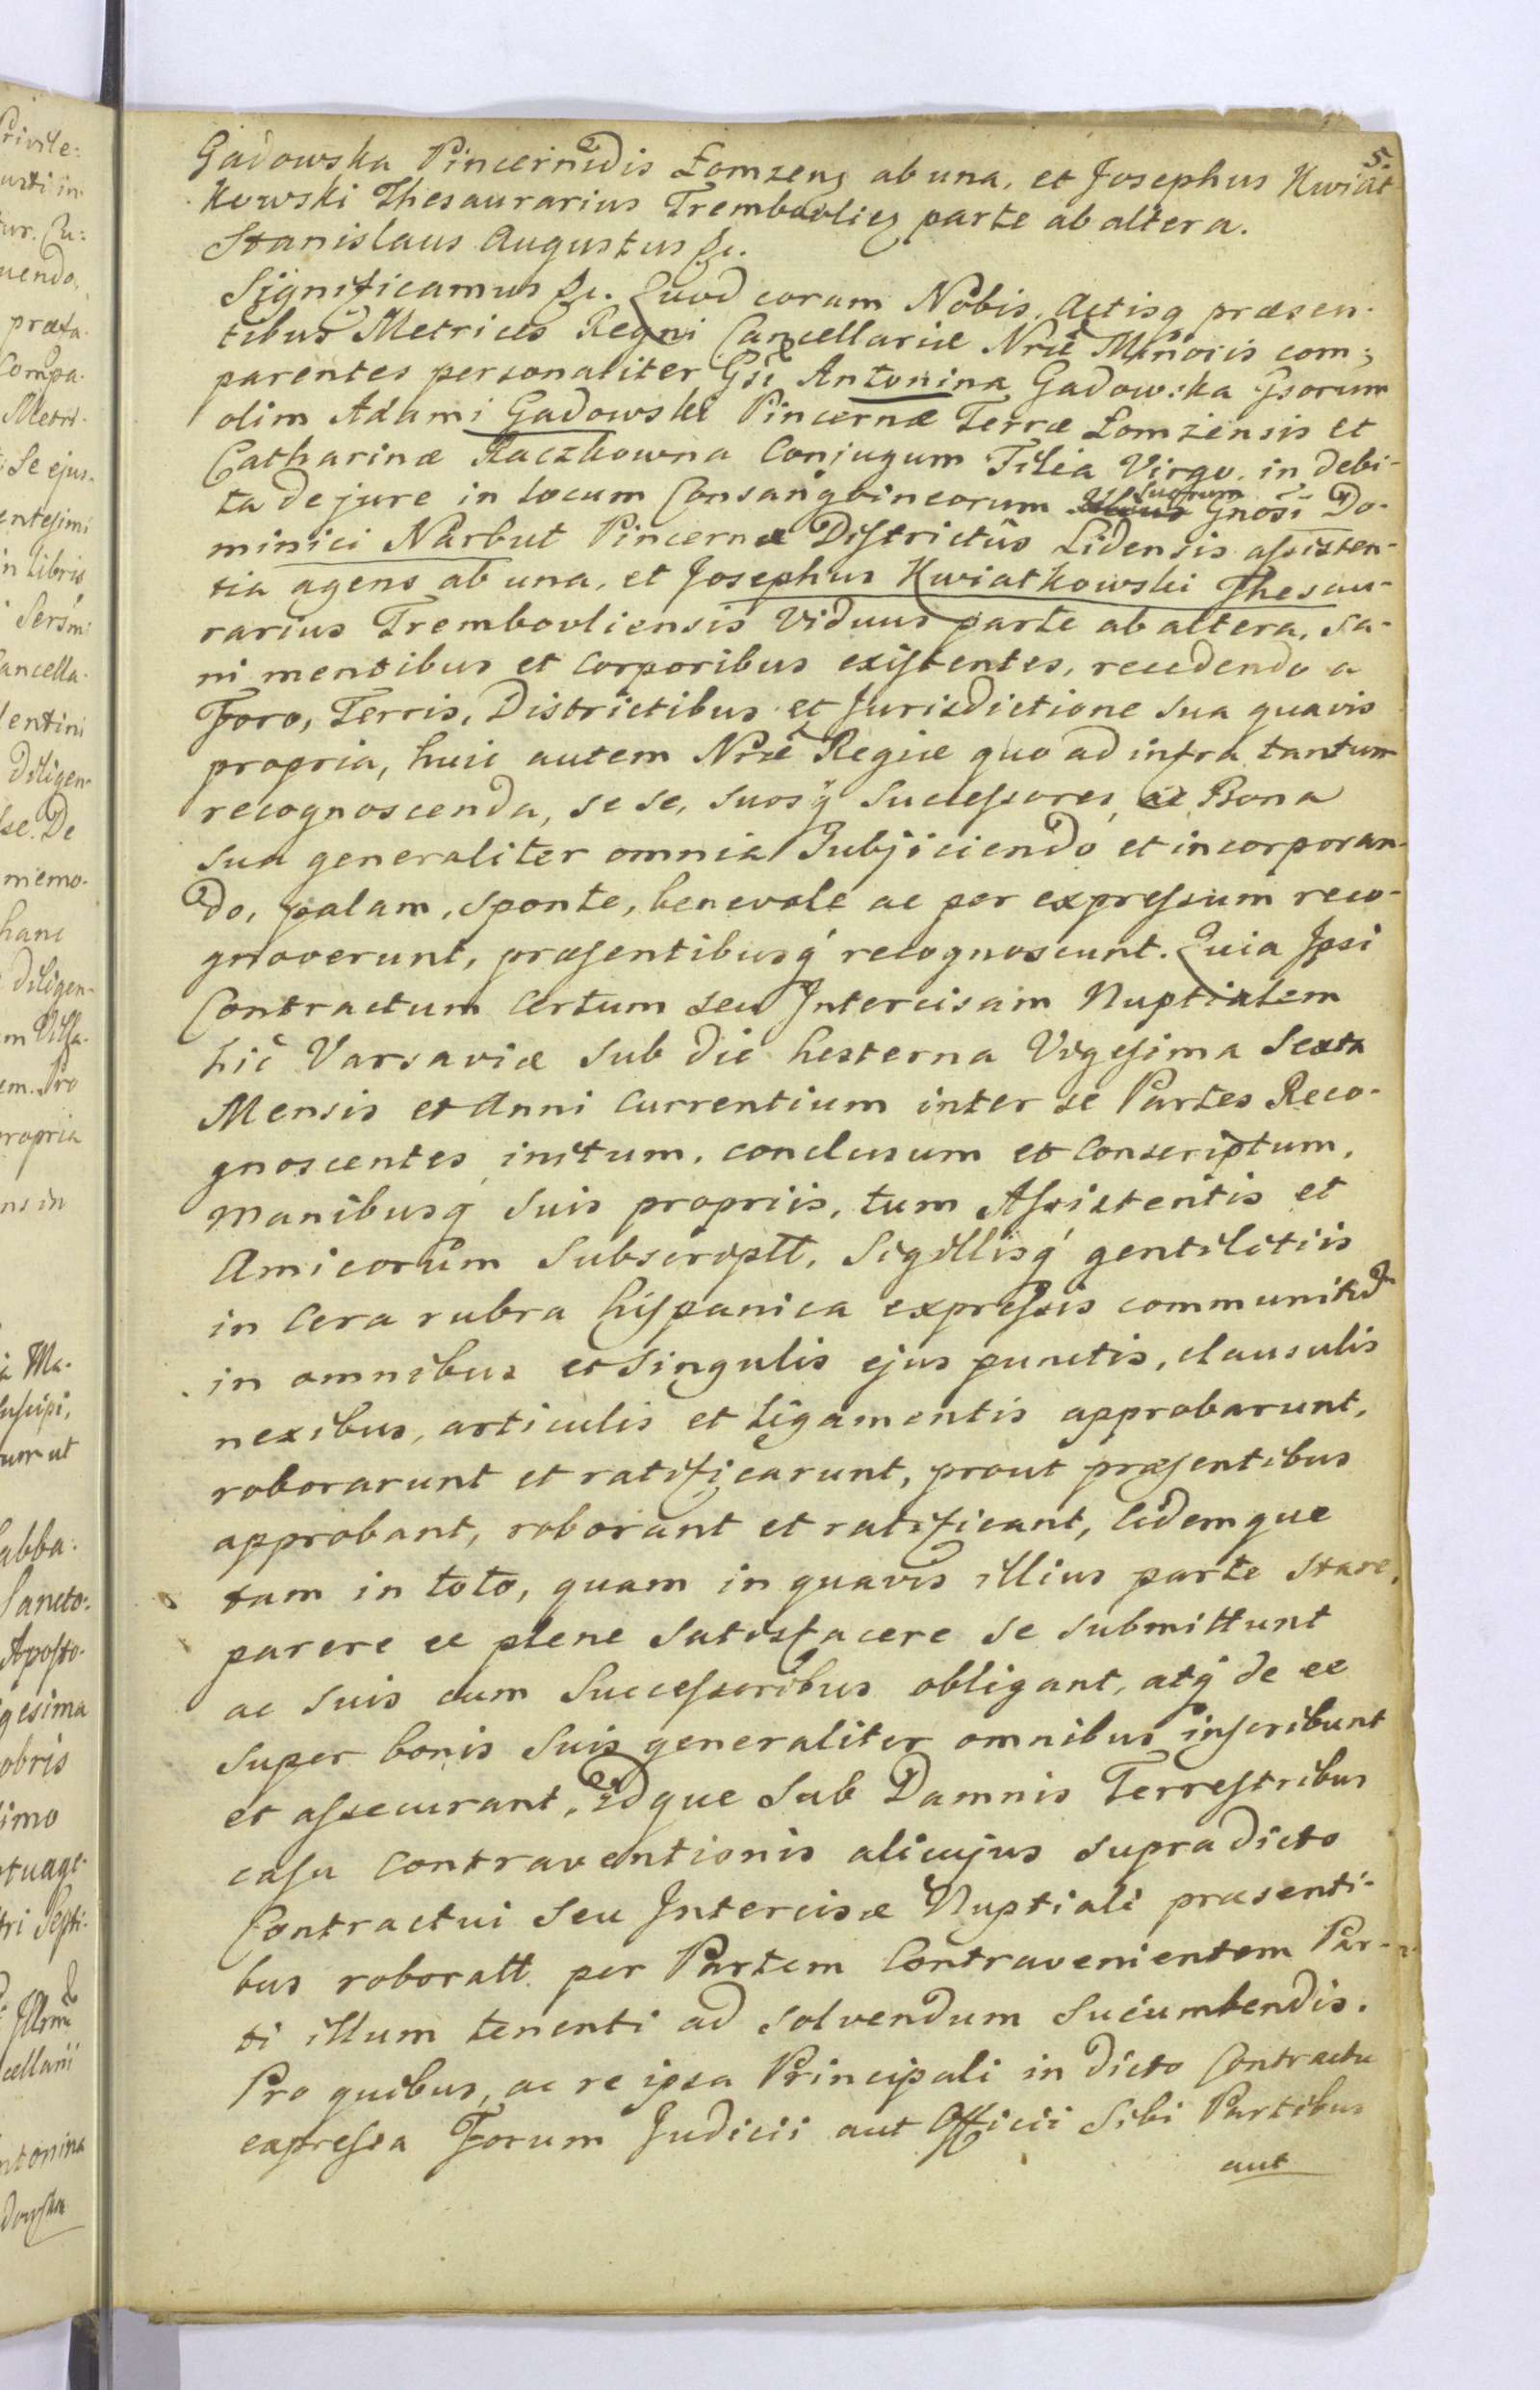 5.
Gadowska Pincernidis Łomzens ab una, et Josephus Kwiat-
kowski Thesaurarius Trembovlies parte ab altera.
Stanislaus Augustus &c.
Significamus &c. Quod coram Nobis, Actisq præsen-
tibus Metrices Regni Cancellariæ Nræ Minoris com-
parentes personaliter Gsi Antonina Gadowska Gsorum
olim Adami Gadowski Pincernæ Terræ Łomzensis et
Catharinæ Raczkowna Conjugum Filia Virgo, in debi-
ta de jure in locum Consangvineorum suorum Gnosi Do-
minici Narbut Pincernæ Districtûs Lidensis assisten-
tia agens ab una, et Josephus Kwiatkowski Thesau-
rarius Trembovliensis Viduus parte ab altera, sa-
ni mentibus et corporibus existentes, recedendo a
Foro, Terris, Districtibus et Jurisdictione sua quavis
propria, huic autem Nræ Regiæ quo ad infra tantum
recognoscenda, se se, suosq Successores, ac Bona
sua generaliter omnia Subjiciendo et incorporan-
do, palam, sponte, benevole ac per expressum reco-
gnoverunt, præsentibusq recognoscunt. Quia Ipsi
Contractum certum seu Intercisam Nuptialem
hic Varsaviæ sub die hesterna Vigesima Sexta
Mensis et Anni currentium inter se Partes Reco-
gnoscentes initum, conclusum et conscriptum,
manibusq suis propriis, tum Assistentis et
Amicorum Subscriptt, Sigillisq gentilitiis
in Cera rubra hispanica expressis communitum
in omnibus et singulis ejus punctis, clausulis
nexibus, articulis et ligamentis approbarunt,
roborarunt et ratificarunt, prout præsentibus
approbant, roborant et ratificant, eidemque
tam in toto, quam in quavis illius parte stare,
parere et plene satisfacere se submittunt
ac suis cum Successoribus obligant, atq de ee
super bonis suis generaliter omnibus inscribunt
et assecurant, Idque sub Damnis Terrestribus
casu contraventionis alicujus supradicto
Contractui seu Intercisæ Nuptiali præsenti-
bus roboratt per Partem Contravenientem Par-
ti illum tenenti ad solvendum sucumbendis.
Pro quibus, ac re ipsa Principali in dicto Contractu
expressa Forum Judicii aut Officii Sibi Partibus
aut